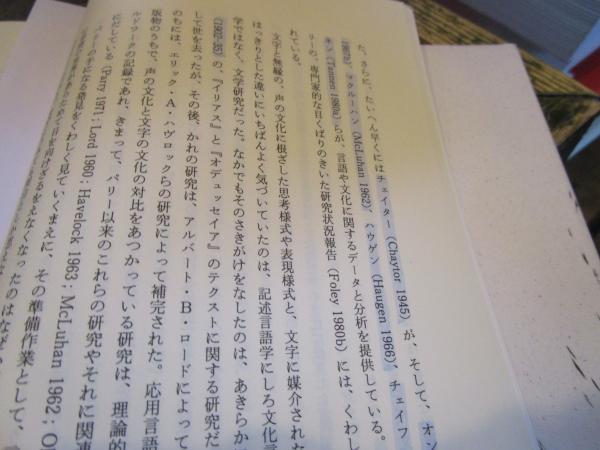 た。さらに、たいへん早くにはチェイター（Chaytor 1945）が、そして、オン
1967a）、マクルーハン（McLuhan 1962）、ハウゲン（Haugen 1966）、チェイフ
ネン（Tannen 1980a）らが、言語や文化に関するデータと分析を提供している。
リーの、専門家的な目くばりのきいた研究状況報告（Foley 1980b）には、くわし
れている。
文字と無縁の、声の文化に根ざした思考様式や表現様式と、文字に媒介された
はっきりとした違いにいちばんよく気づいていたのは、記述言語学にしろ文化言
学ではなく、文学研究だった。なかでもそのさきがけをなしたのは、あきらか
（1902-35）の、『イリアス』と『オデュッセイア』のテクストに関する研究だ
して世を去ったが、その後、かれの研究は、アルバート・B・ロードによって
のちには、エリック・A・ハヴロックらの研究によって補完された。応用言語
版物のうちで、声の文化と文字の文化の対比をあつかっている研究は、理論的
ルドワークの記録であれ、きまって、パリー以来のこれらの研究やそれに関連
にだしている（Parry 1971; Lord 1960; Havelock 1963; McLuhan 1962; O
の手になる発見をくわしく見ていくまえに、その準備作業として、
目を向けざるをえなくなったのはなぜ